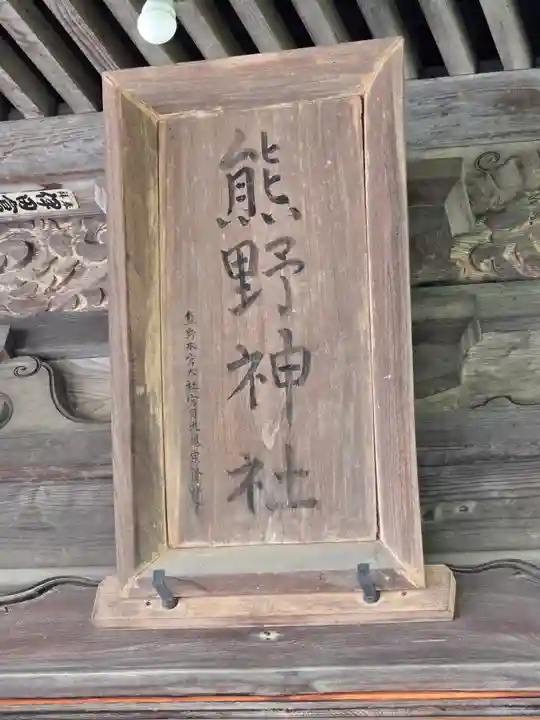 熊野神社
熊野本宮大社宮司九鬼宗隆